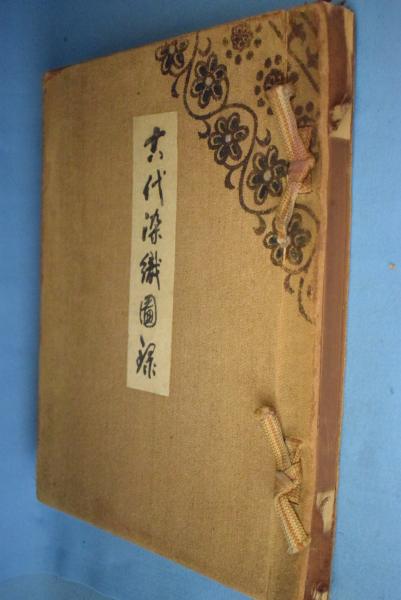 古代染織圖録